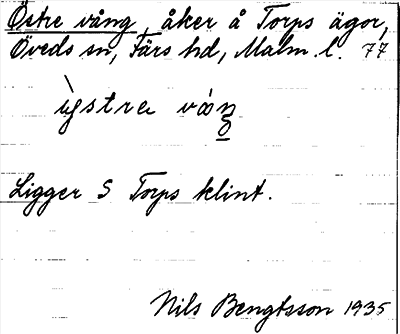 Östre vång, åker å Torps ägor,
Öveds sn, Färs hd, Malm. l. 77
ỳstre våŋ
Ligger S Torps klint.
Nils Bengtsson 1935